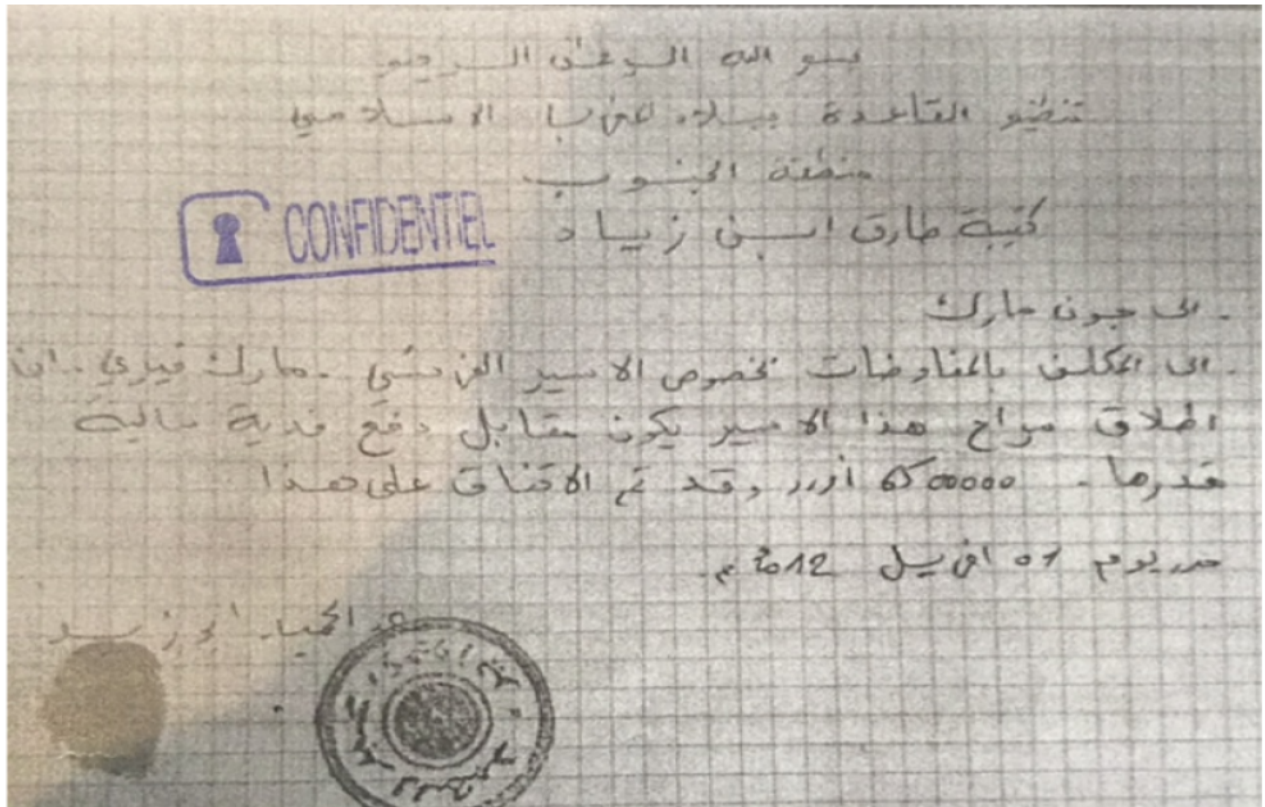 بسم الله الرحمن الرحيم
تنظيم القاعدة ببلاد المغرب الاسلامي
منطقة الجنوب
كتيبة طارق ابن زياد
CONFIDENTIEL
- الى جون مارك
- الى المكلف بالمفاوضات بخصوص الاسير الفرنسي - مارك فيري - ان
اطلاق سراح هذا الاسير يكون مقابل دفع فدية مالية
قدرها - 6500000 أورو وقد تم الاتفاق على هذا
حرر يوم 01 افريل 2012 م
عبد الحميد ابو زيد